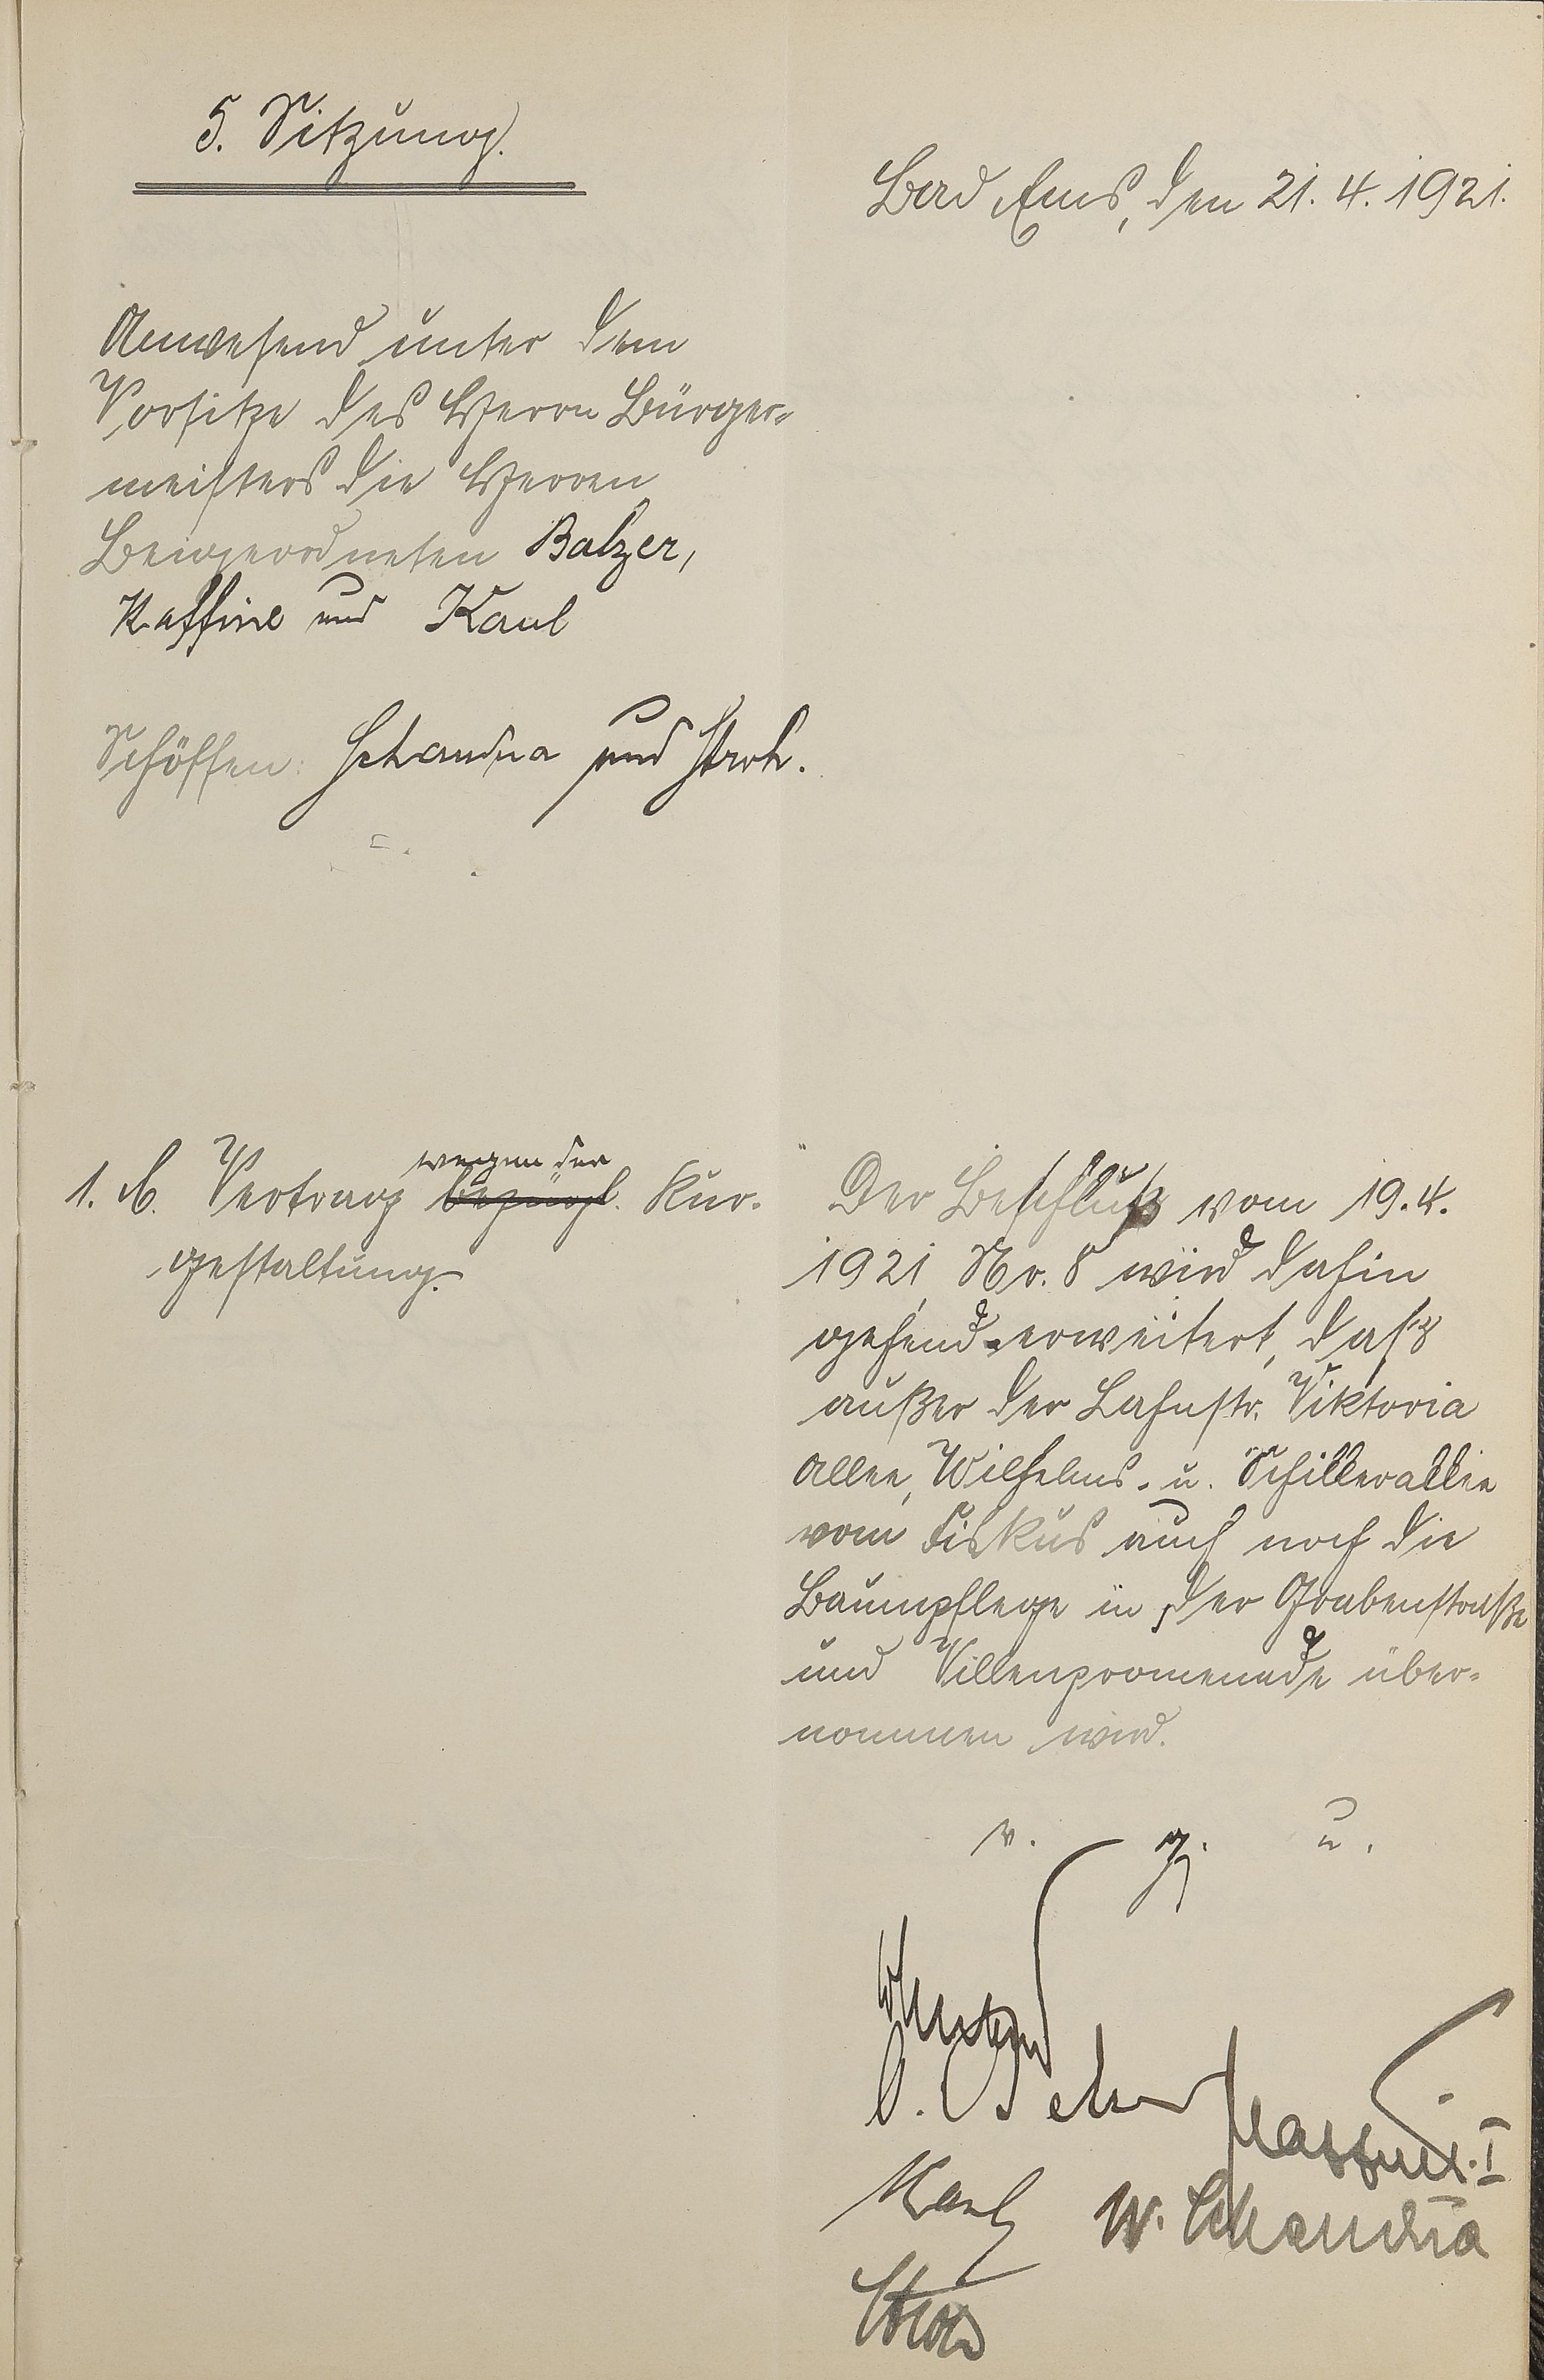 5. Sitzung.
Bad Ems, den 21. 4. 1921.
Anwesend unter dem
Vorsitze des Herrn Bürger-
meisters die Herren
Beigeordneten Balzer,
Kaffine und Kaul
Schöffen: Schaudua und Stroh.
wegen der
1. b. Vertrag bezügl. Kur-
gestaltung.
Der Beschluß vom 19. 4.
1921 Nr. 8 wird dahin
gehend erweitert, daß
außer der Lahnstr. Viktoria
allee, Wilhelms- u. Schillerallee
vom Fiskus auch noch die
Baumpflege in der Grabenstraße
und Villenpromenade über-
nommen wird.
v. g. u.
Kaul W.
Stroh